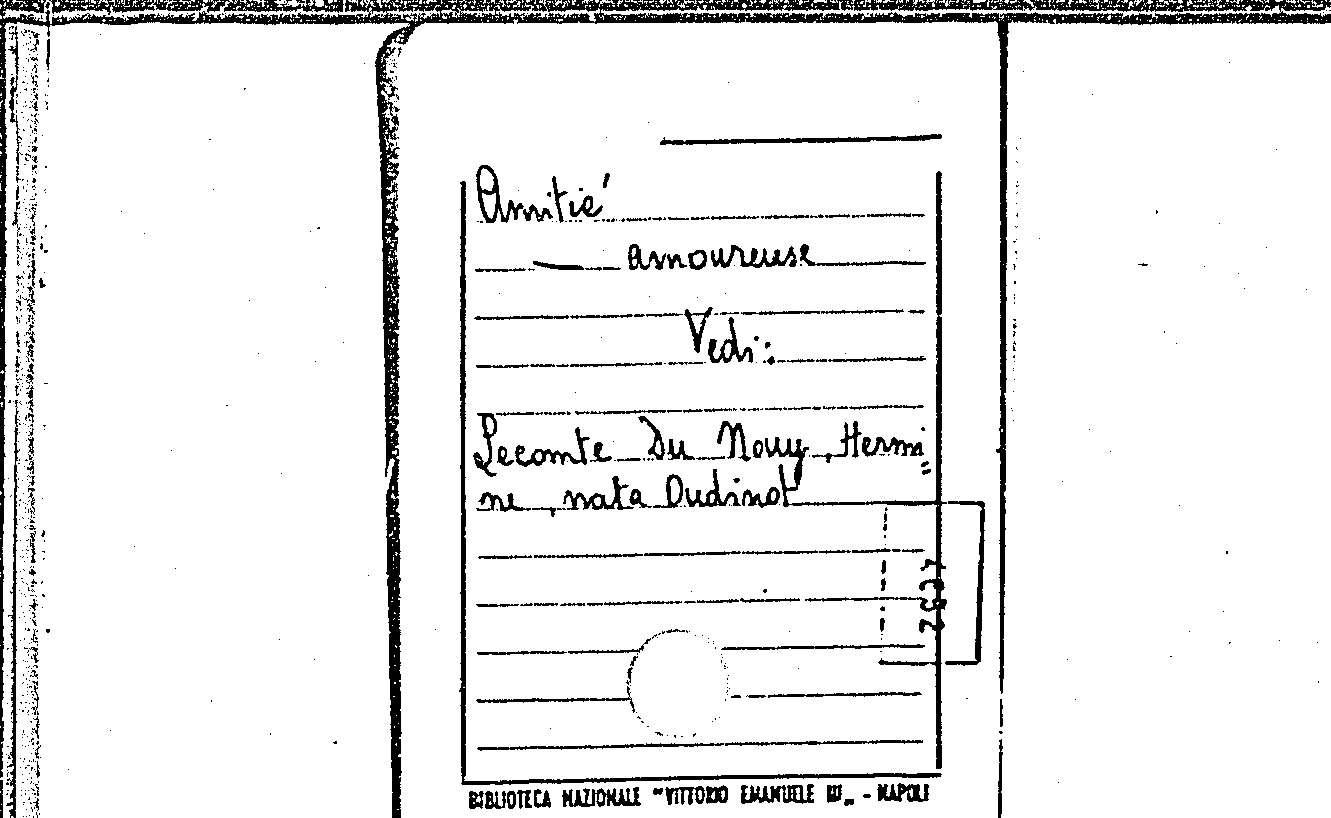 Amitié
— amoureuse
Vedi:
Lecomte Du Nouy, Hermi=
ne, nata Oudinot
BIBLIOTECA NAZIONALE "VITTORIO EMANUELE III„ - NAPOLI